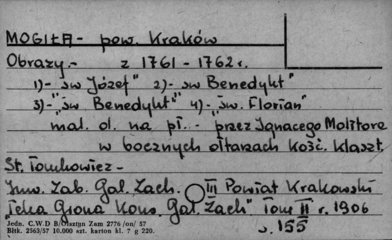 MOGIŁA - pow. Kraków
Obrazy - z 1761 - 1762 r.
1) - "św Józef" 2) - św Benedykt"
3) - "św Benedykt" 4) - "św. Florian"
mal. ol. na pł. - "przez Ignacego Molitora
w bocznych ołtarzach kość. klaszt.
St. Tomkowicz -
Inw. Zab. Gal. Zach. III Powiat Krakowski
"Teka Grona Kons. Gal. Zach." Tom II r. 1906
s. 155
Jedn. C.W.D B/Olsztyn Zam 2776/on/57
Bltk. 2563/57 10.000 szt. karton kl. 7 g 220.